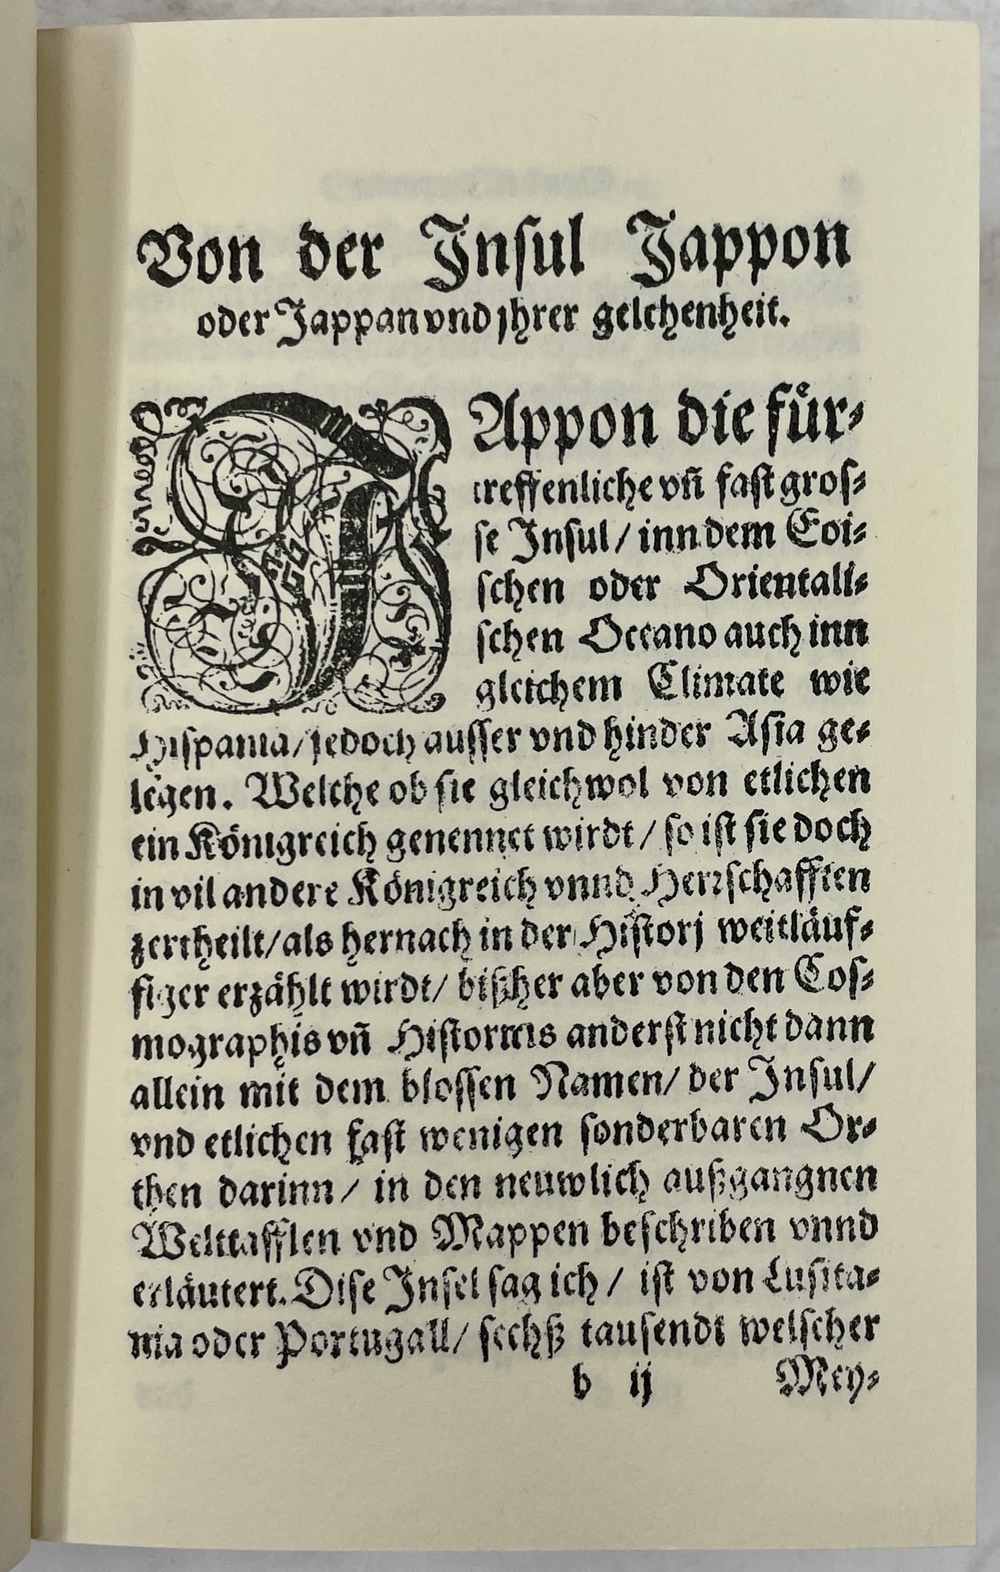 Von der Jnsul Jappon
oder Jappan vnd jhrer gelchenheit.
JAppon die fuͤr⸗
treffenliche vñ fast gros⸗
se Jnsul / inn dem Eoi⸗
schen oder Orientali⸗
schen Oceano auch inn
gleichem Climate wie
Hispania / jedoch ausser vnd hinder Asia ge⸗
legen. Welche ob sie gleichwol von etlichen
ein Königreich genennet wirdt / so ist sie doch
in vil andere Königreich vnnd Herrschafften
zertheilt / als hernach in der Historj weitläuf⸗
figer erzählt wirdt / bißher aber von den Cos⸗
mographis vñ Historicis anderst nicht dann
allein mit dem blossen Namen / der Jnsul /
vnd etlichen fast wenigen sonderbaren Or⸗
then darinn / in den neuwlich außgangnen
Welttafflen vnd Mappen beschriben vnnd
erläutert. Dise Jnsel sag ich / ist von Lusita⸗
nia oder Portugall / sechß tausendt welscher
b ij Mey⸗